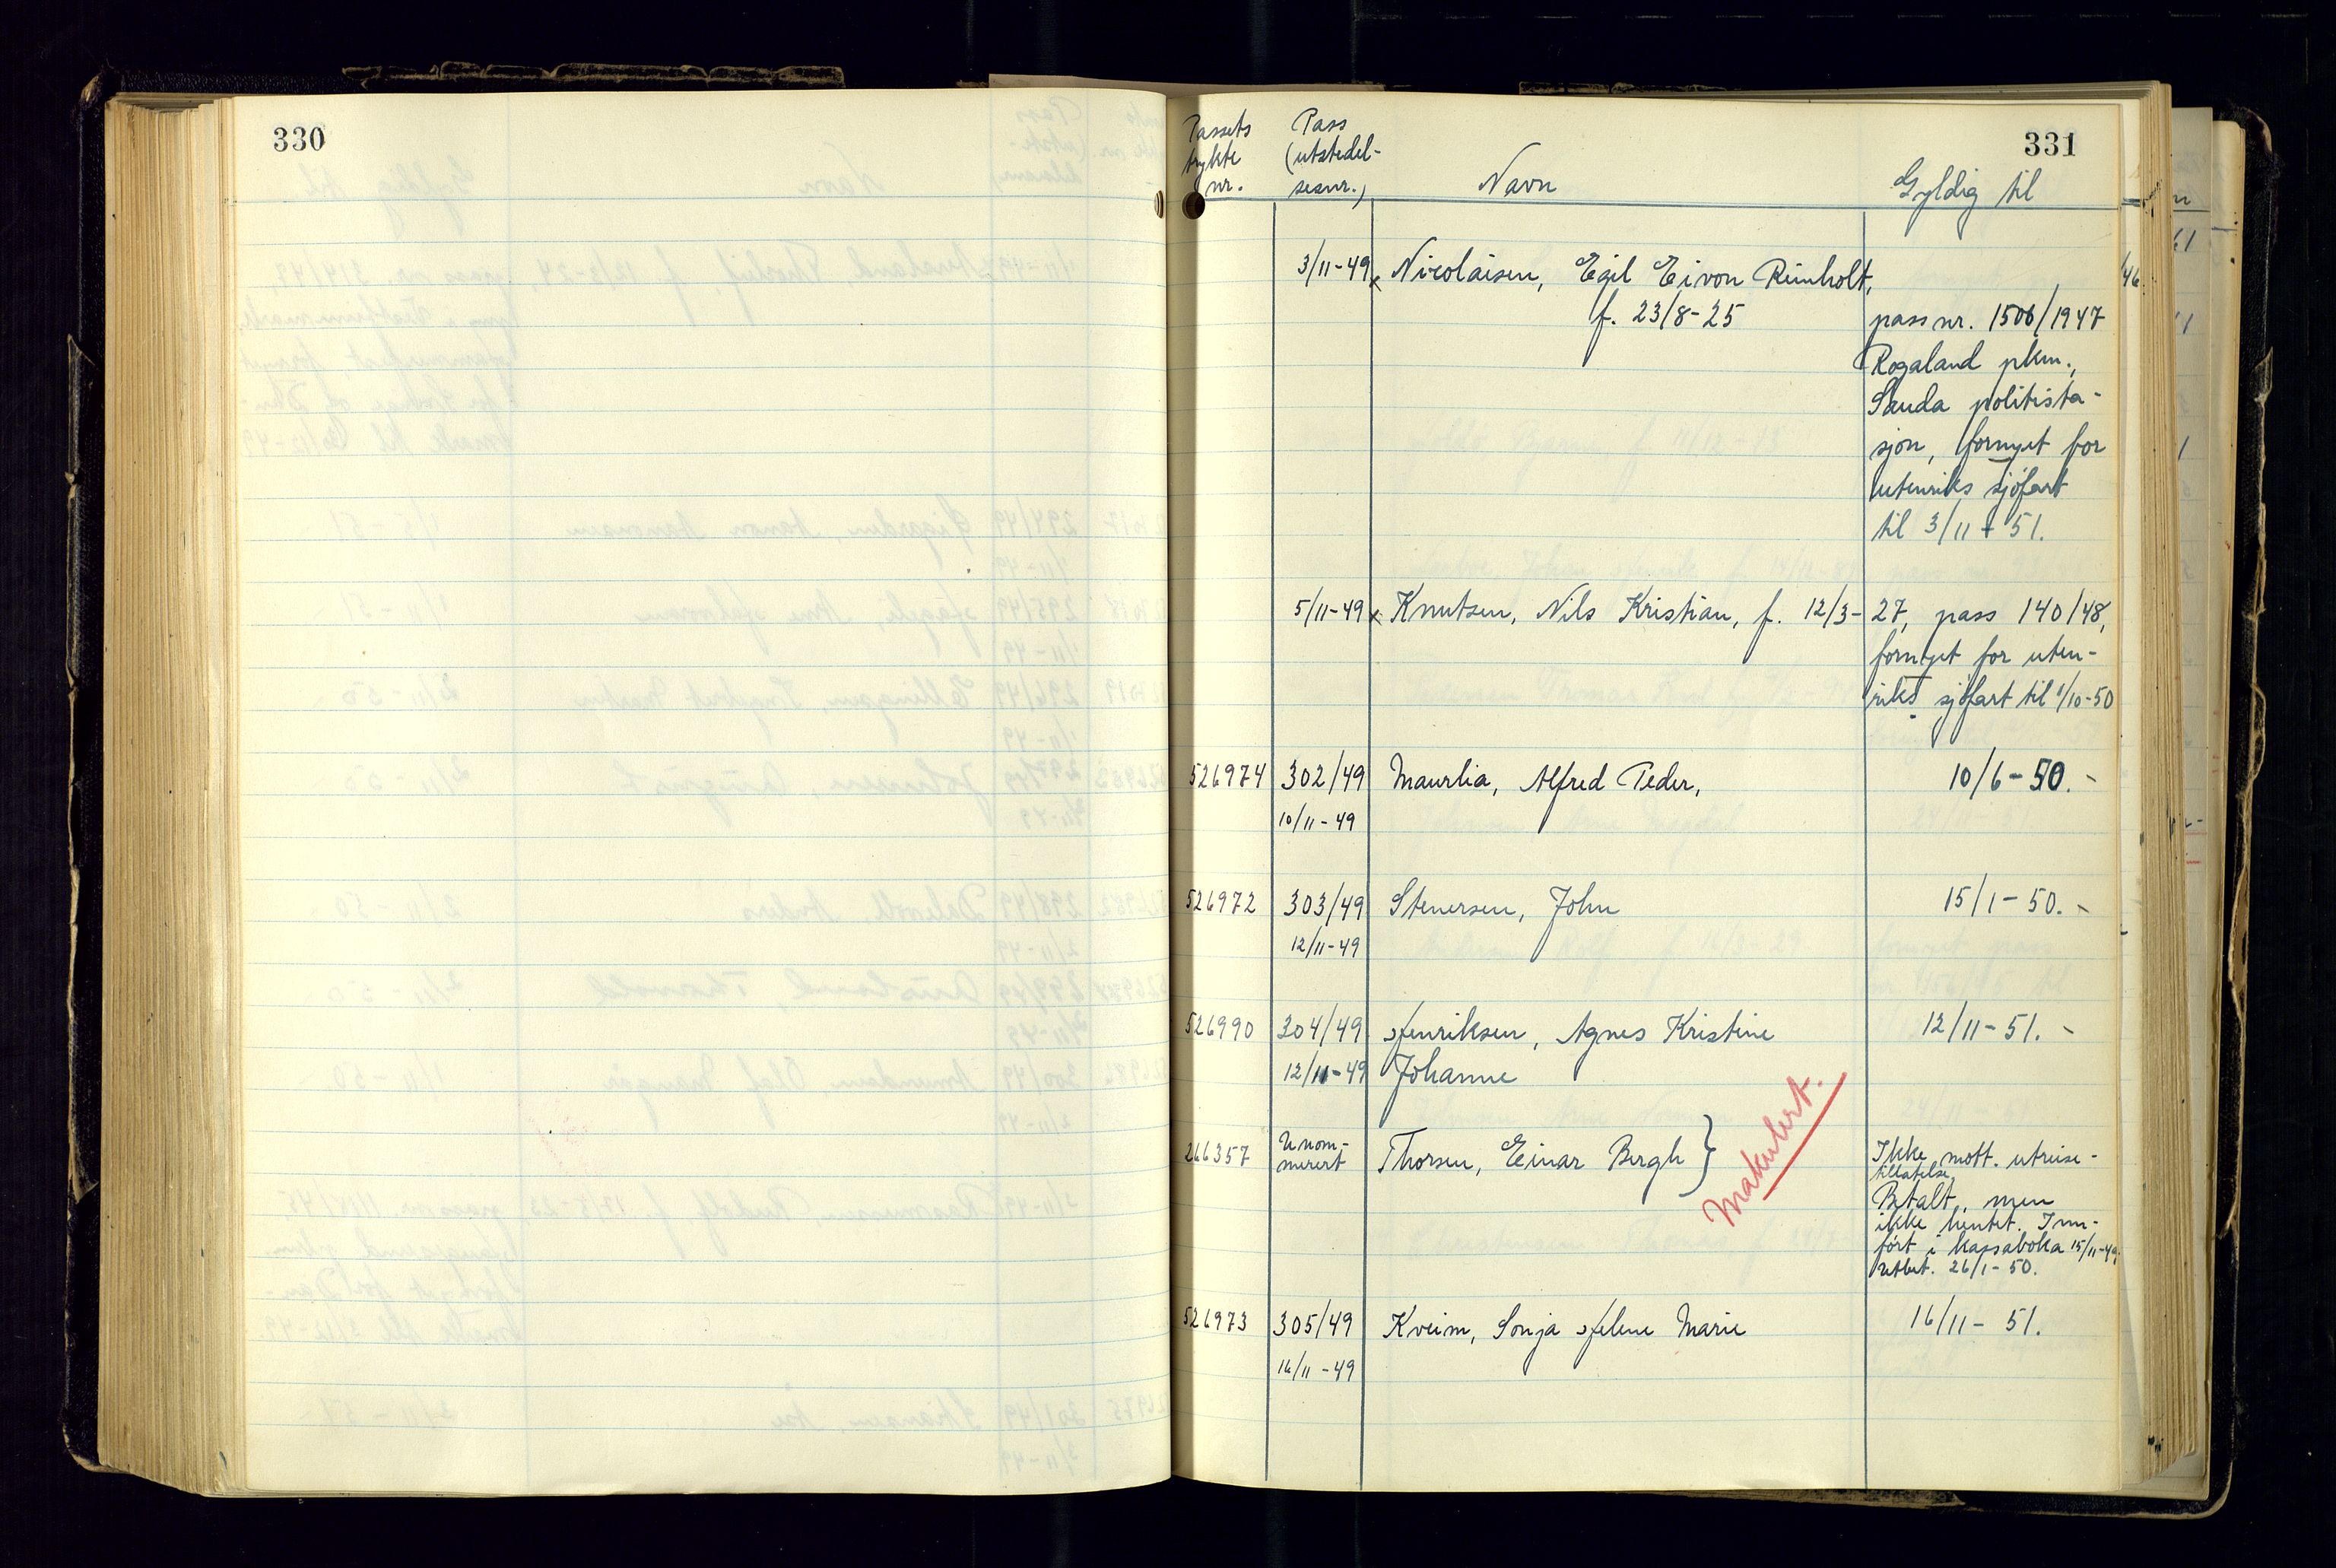 330
331
Passets trykte nr.
Pass (utstedel-sesnr.)
Navn
Gyldig til
3/11-49 x Nicolaisen, Egil Eivon Reinholt,
f. 23/8-25 pass nr. 1506/1947
Rogaland pkm.,
Sauda politista-
sjon, fornyet for
utenriks sjöfart
til 3/11-51.
5/11-49 x Knutsen, Nils Kristian, f. 12/3-27, pass 140/48,
fornyet for uten-
riks sjöfart til 1/10-50
526974 302/49 Maurlia, Alfred Peder, 10/6-50.-
10/11-49
526972 303/49 Stenersen, John 15/1-50.-
12/11-49
526990 304/49 Henriksen, Agnes Kristine 12/11-51.-
12/11-49 Johanne
Makulert.
266357 Unom-merert Thorsen, Einar Bergh } Ikke mott. utreise-
tillatelse
Betalt, men
ikke hentet. Inn-
fört i kassaboka 15/11-49,
utbet. 26/1-50.
526973 305/49 Kveim, Sonja Helene Marie 16/11-51.
16/11-49